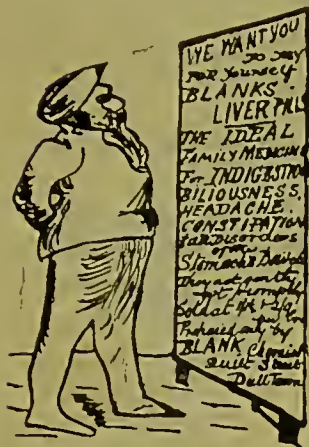 WE WANT YOU
TO TRY
FOR Yourself
BLANKS
LIVER PILLS
THE IDEAL
FAMILY MEDICINE
For INDIGESTION
BILIOUSNESS.
HEADACHE.
CONSTIPATION
& all Disorders
of the
Stomach &
They act gently
yet promptly
Sold at 1/1½ & 2/9
per box
Prepared only by
BLANK Chemist
Street
Dulltown